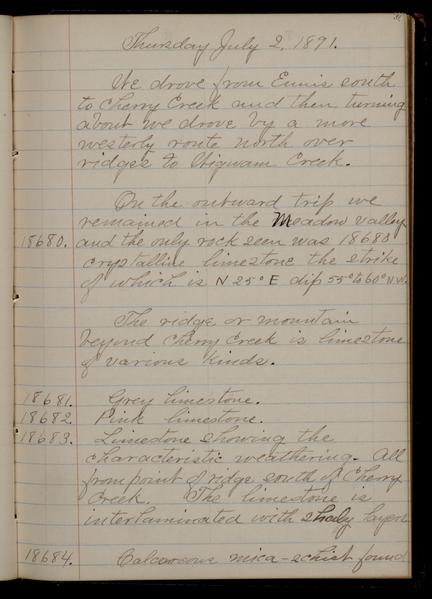 Thursday July 2, 1891.
We drove from Ennis south
to Cherry Creek and then turning
about we drove by a more
westerly route north over
ridges to Wigwam Creek.
On the outward trip we
remained in the Meadow Valley
18680. and the only rock seen was 18680
crystalline limestone the strike
of which is N 25° E dip 55° to 60° N.W.
The ridge or mountain
beyond Cherry Creek is limestone
of various kinds.
18681. Grey limestone.
18682. Pink limestone.
18683. Limestone showing the
characteristic weathering. All
from point of ridge south of Cherry
Creek. The limestone is
interlaminated with shaly layers
18684. Calcareous mica-schist found